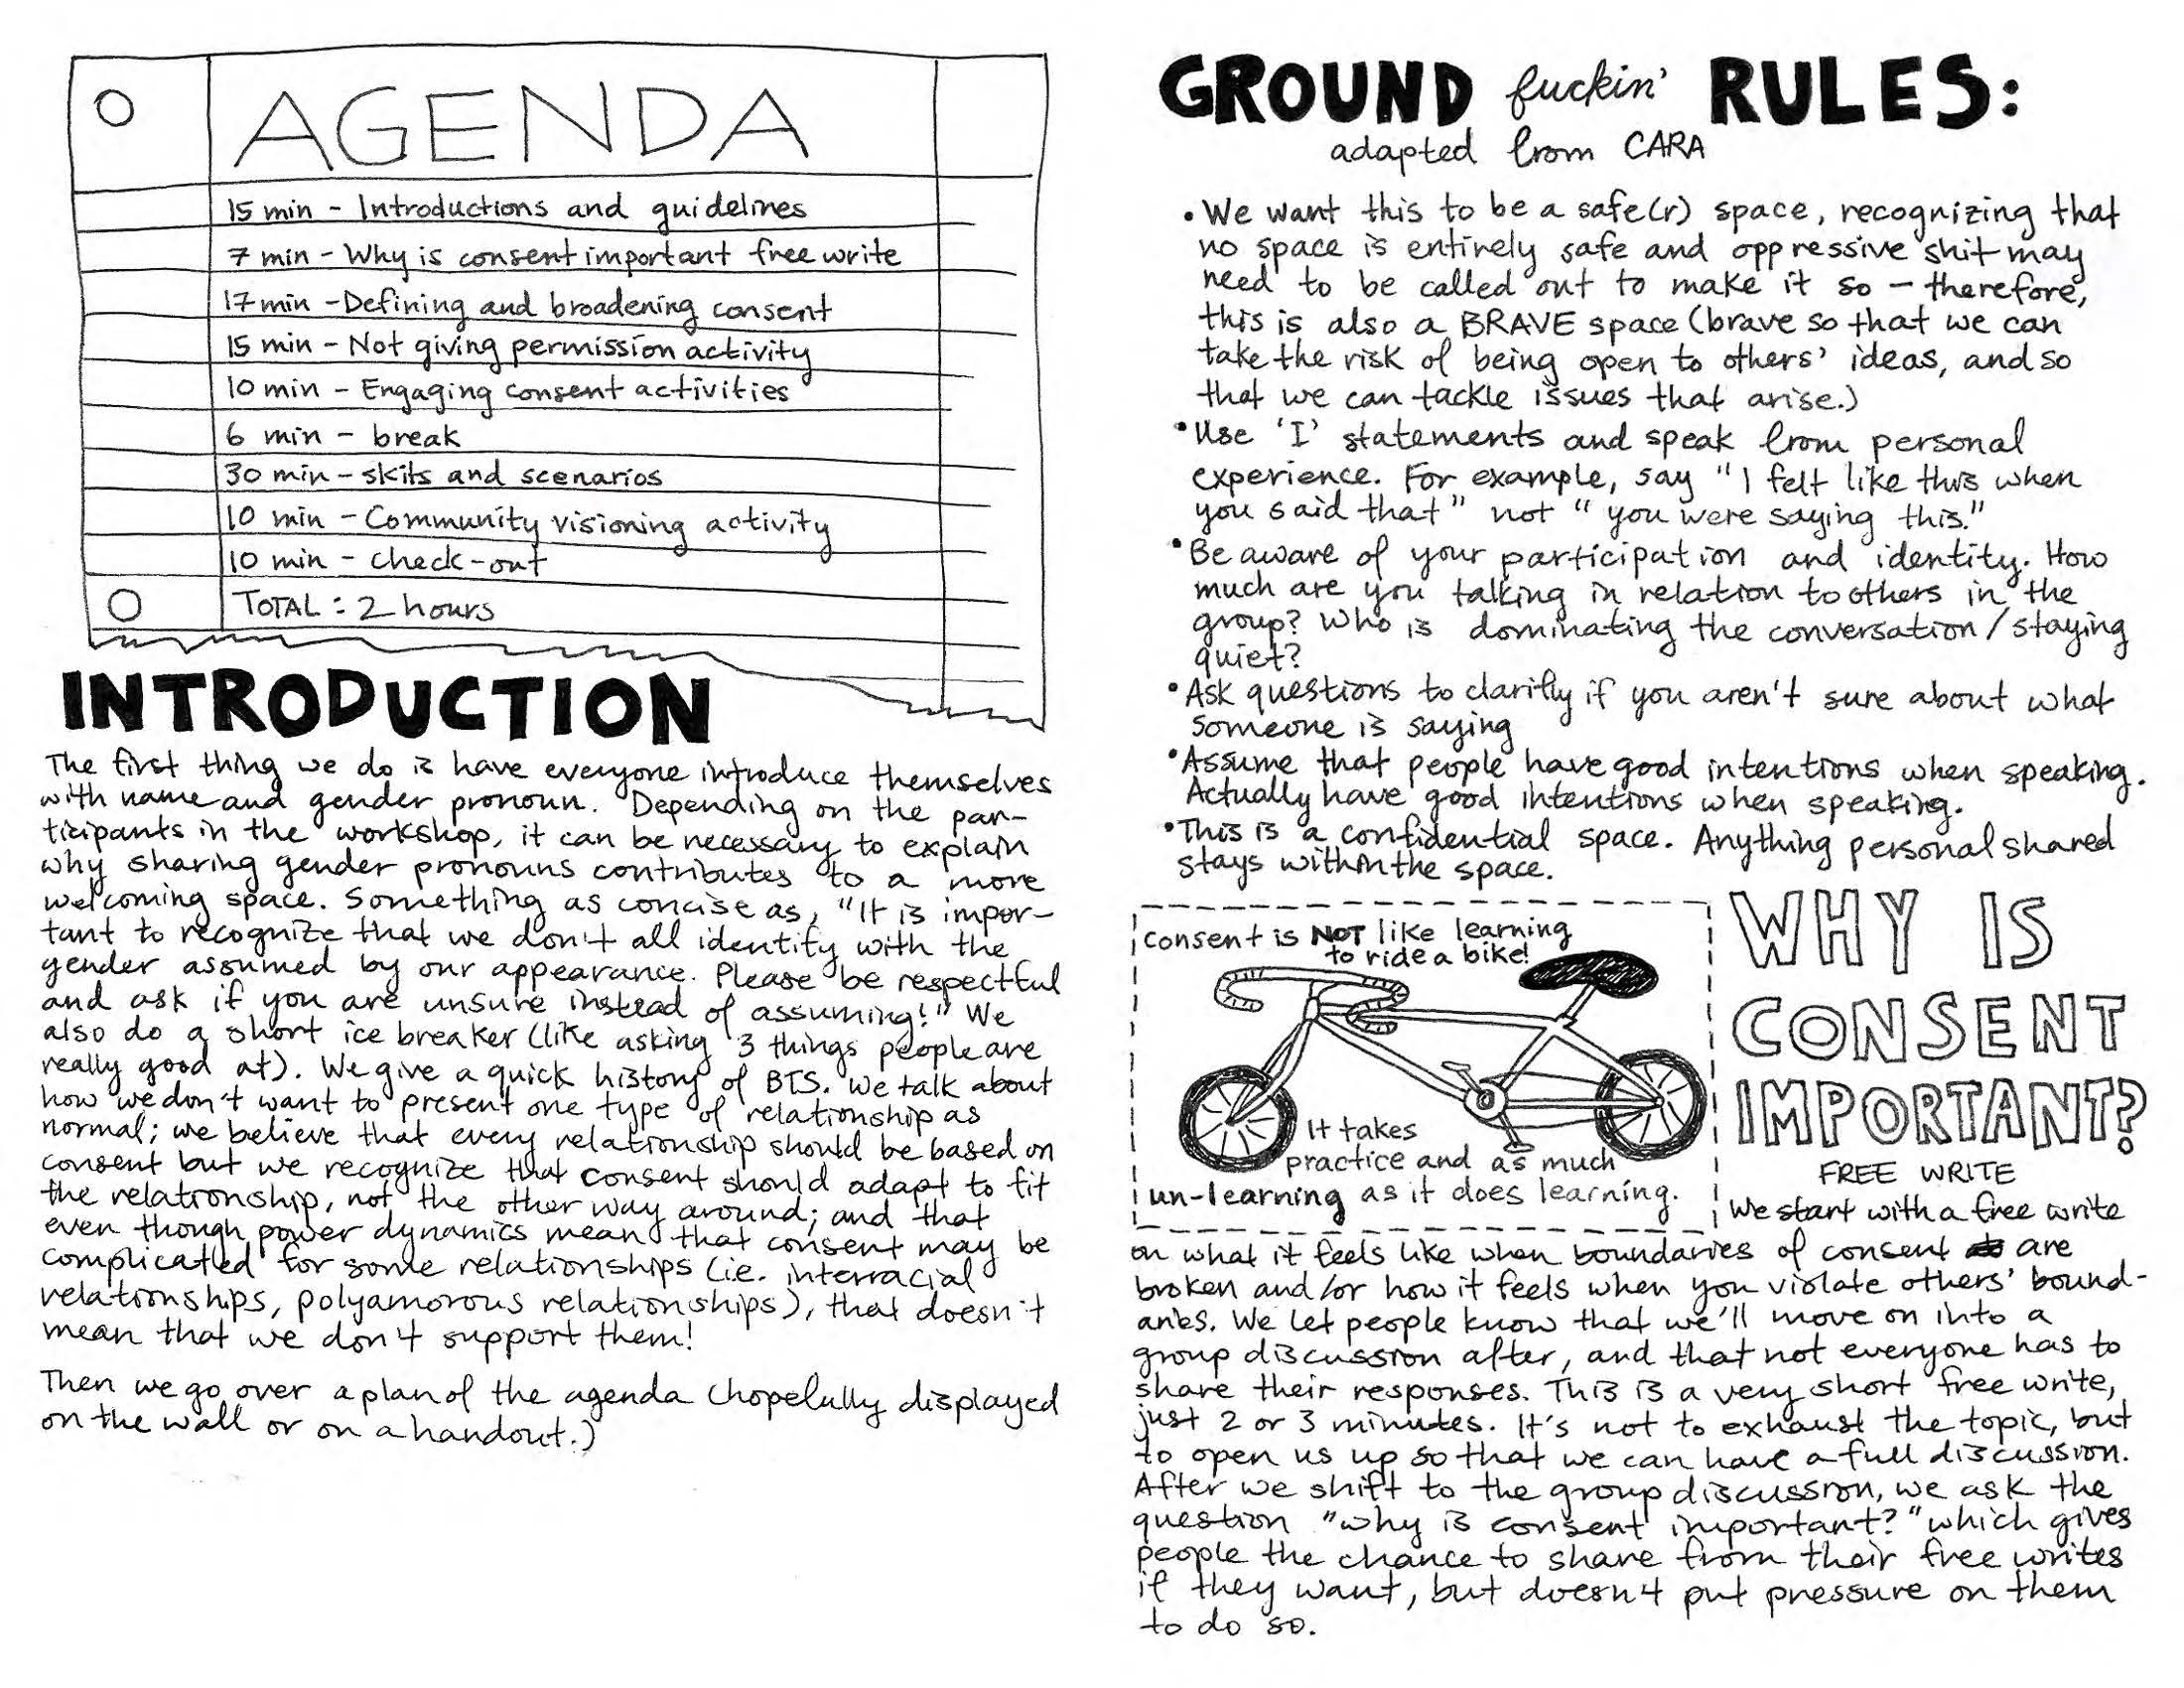 AGENDA
15 min - Introductions and guidelines
7 min - Why is consent important free write
17 min - Defining and broadening consent
15 min - Not giving permission activity
10 min - Engaging consent activities
6 min - break
30 min - skits and scenarios
10 min - Community visioning activity
10 min - check-out
TOTAL: 2 hours
INTRODUCTION
The first thing we do is have everyone introduce themselves
with name and gender pronoun. Depending on the par-
ticipants in the workshop, it can be necessary to explain
why sharing gender pronouns contributes to a more
welcoming space. Something as concise as, "It is impor-
tant to recognize that we don't all identify with the
gender assumed by our appearance. Please be respectful
and ask if you are unsure instead of assuming!" We
also do a short ice breaker (like asking 3 things people are
really good at). We give a quick history of BTS. We talk about
how we don't want to present one type of relationship as
normal; we believe that every relationship should be based on
consent but we recognize that consent should adapt to fit
the relationship, not the other way around; and that
even though power dynamics mean that consent may be
complicated for some relationships (i.e. interracial
relationships, polyamorous relationships), that doesn't
mean that we don't support them!
Then we go over a plan of the agenda (hopefully displayed
on the wall or on a handout.)
GROUND fuckin' RULES:
adapted from CARA
• We want this to be a safe(r) space, recognizing that
no space is entirely safe and oppressive shit may
need to be called out to make it so - therefore,
this is also a BRAVE space (brave so that we can
take the risk of being open to others' ideas, and so
that we can tackle issues that arise.)
• Use 'I' statements and speak from personal
experience. For example, say "I felt like this when
you said that" not "you were saying this."
• Be aware of your participation and identity. How
much are you talking in relation to others in the
group? Who is dominating the conversation/staying
quiet?
• Ask questions to clarify if you aren't sure about what
someone is saying
• Assume that people have good intentions when speaking.
Actually have good intentions when speaking.
• This is a confidential space. Anything personal shared
stays within the space.
consent is NOT like learning
to ride a bike!
It takes
practice and as much
un-learning as it does learning.
WHY IS
CONSENT
IMPORTANT?
FREE WRITE
We start with a free write
on what it feels like when boundaries of consent are
broken and/or how it feels when you violate others' bound-
aries. We let people know that we'll move on into a
group discussion after, and that not everyone has to
share their responses. This is a very short free write,
just 2 or 3 minutes. It's not to exhaust the topic, but
to open us up so that we can have a full discussion.
After we shift to the group discussion, we ask the
question "why is consent important?" which gives
people the chance to share from their free writes
if they want, but doesn't put pressure on them
to do so.